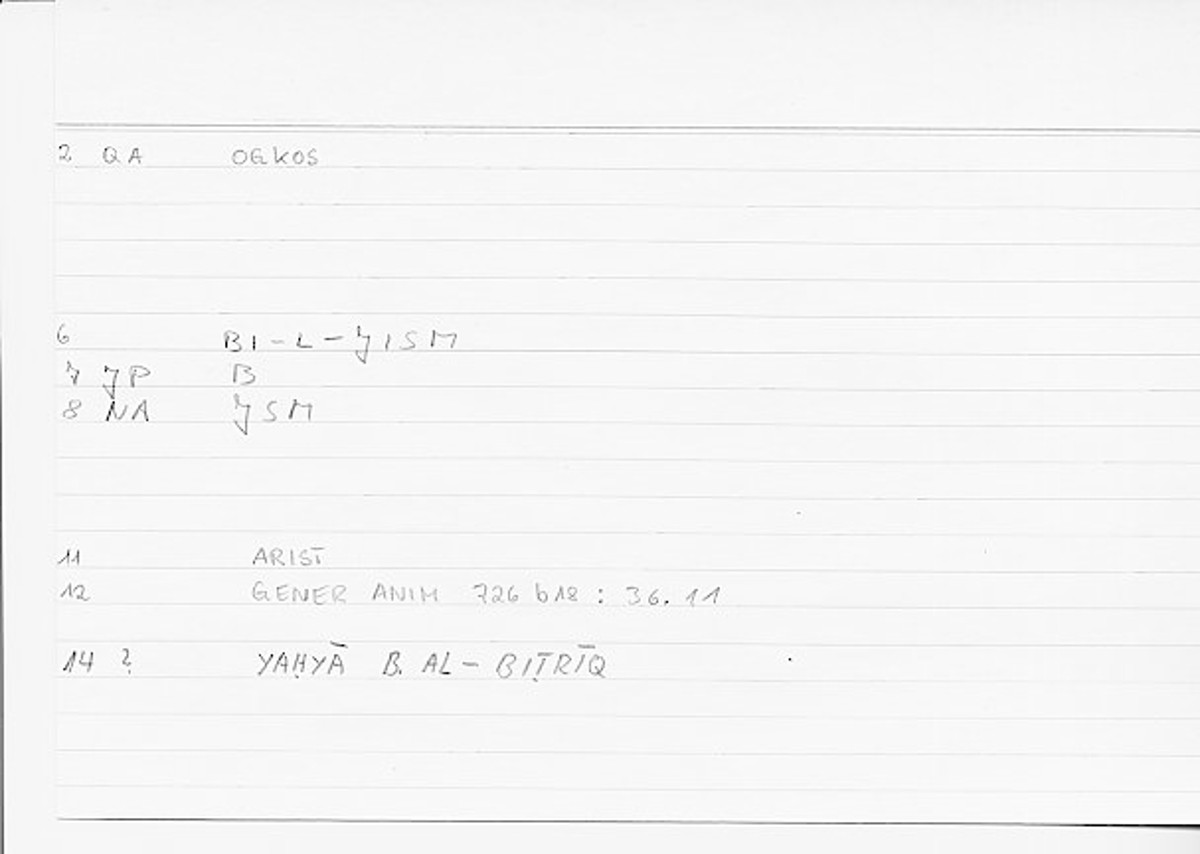 2 QA OGKOS
6 BI-L-JISM
7 JP B
8 NA JSM
11 ARIST
12 GENER ANIM 726 b18 : 36.11
14 ? YAḤYĀ B. AL-BIṬRĪQ